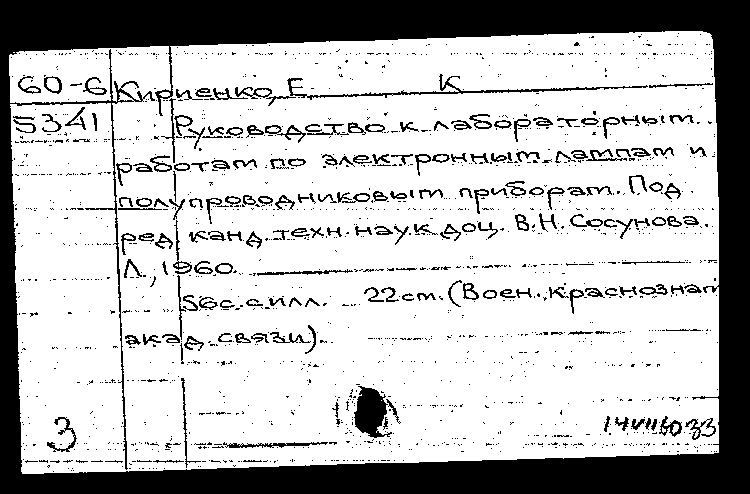 60-6 Кириенко, Е. К
5341 Руководство к лабораторным
работам по электронным лампам и
полупроводниковым приборам. Под
ред. канд. техн. наук доц. В.Н. Сосунова.
Л., 1960.
56с. с илл. 22см. (Воен. краснознам
акад. связи).
3
14VII60 33